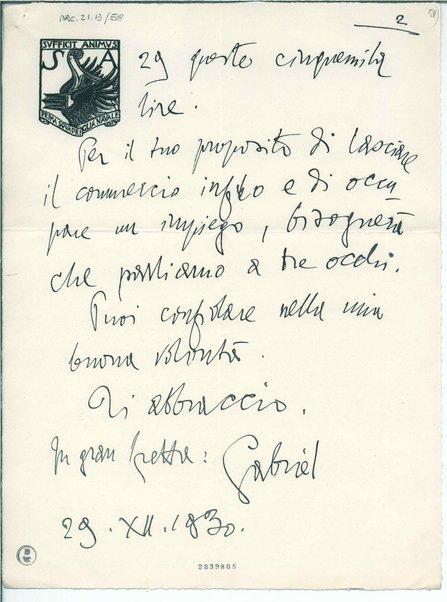 ARC. 21.13/58
2
SVFFICIT ANIMVS
S A
PRIMA SQVADRIGLIA NAVALE
29 queste cinquemila
lire.
Per il tuo proposito di lasciare
il commercio infido e di occu
pare un impiego, bisognerà
che parliamo a tre occhi.
Puoi confidare nella mia
buona volontà.
Ti abbraccio.
In gran fretta:
Gabriel
29. XII. 1930.
2839805